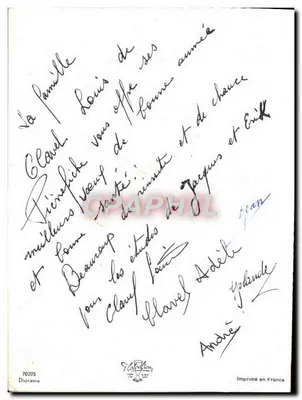 La famille
Clavel Louis de
Pierrefiche vous offre ses
meilleurs vœux de bonne année
et bonne santé!!
Beaucoup de réussite et de chance
pour les études de Jacques et Erik
Clavel Louis
Clavel Adel
Jean
Yolande
André
70205
Diorama
Imprimé en France